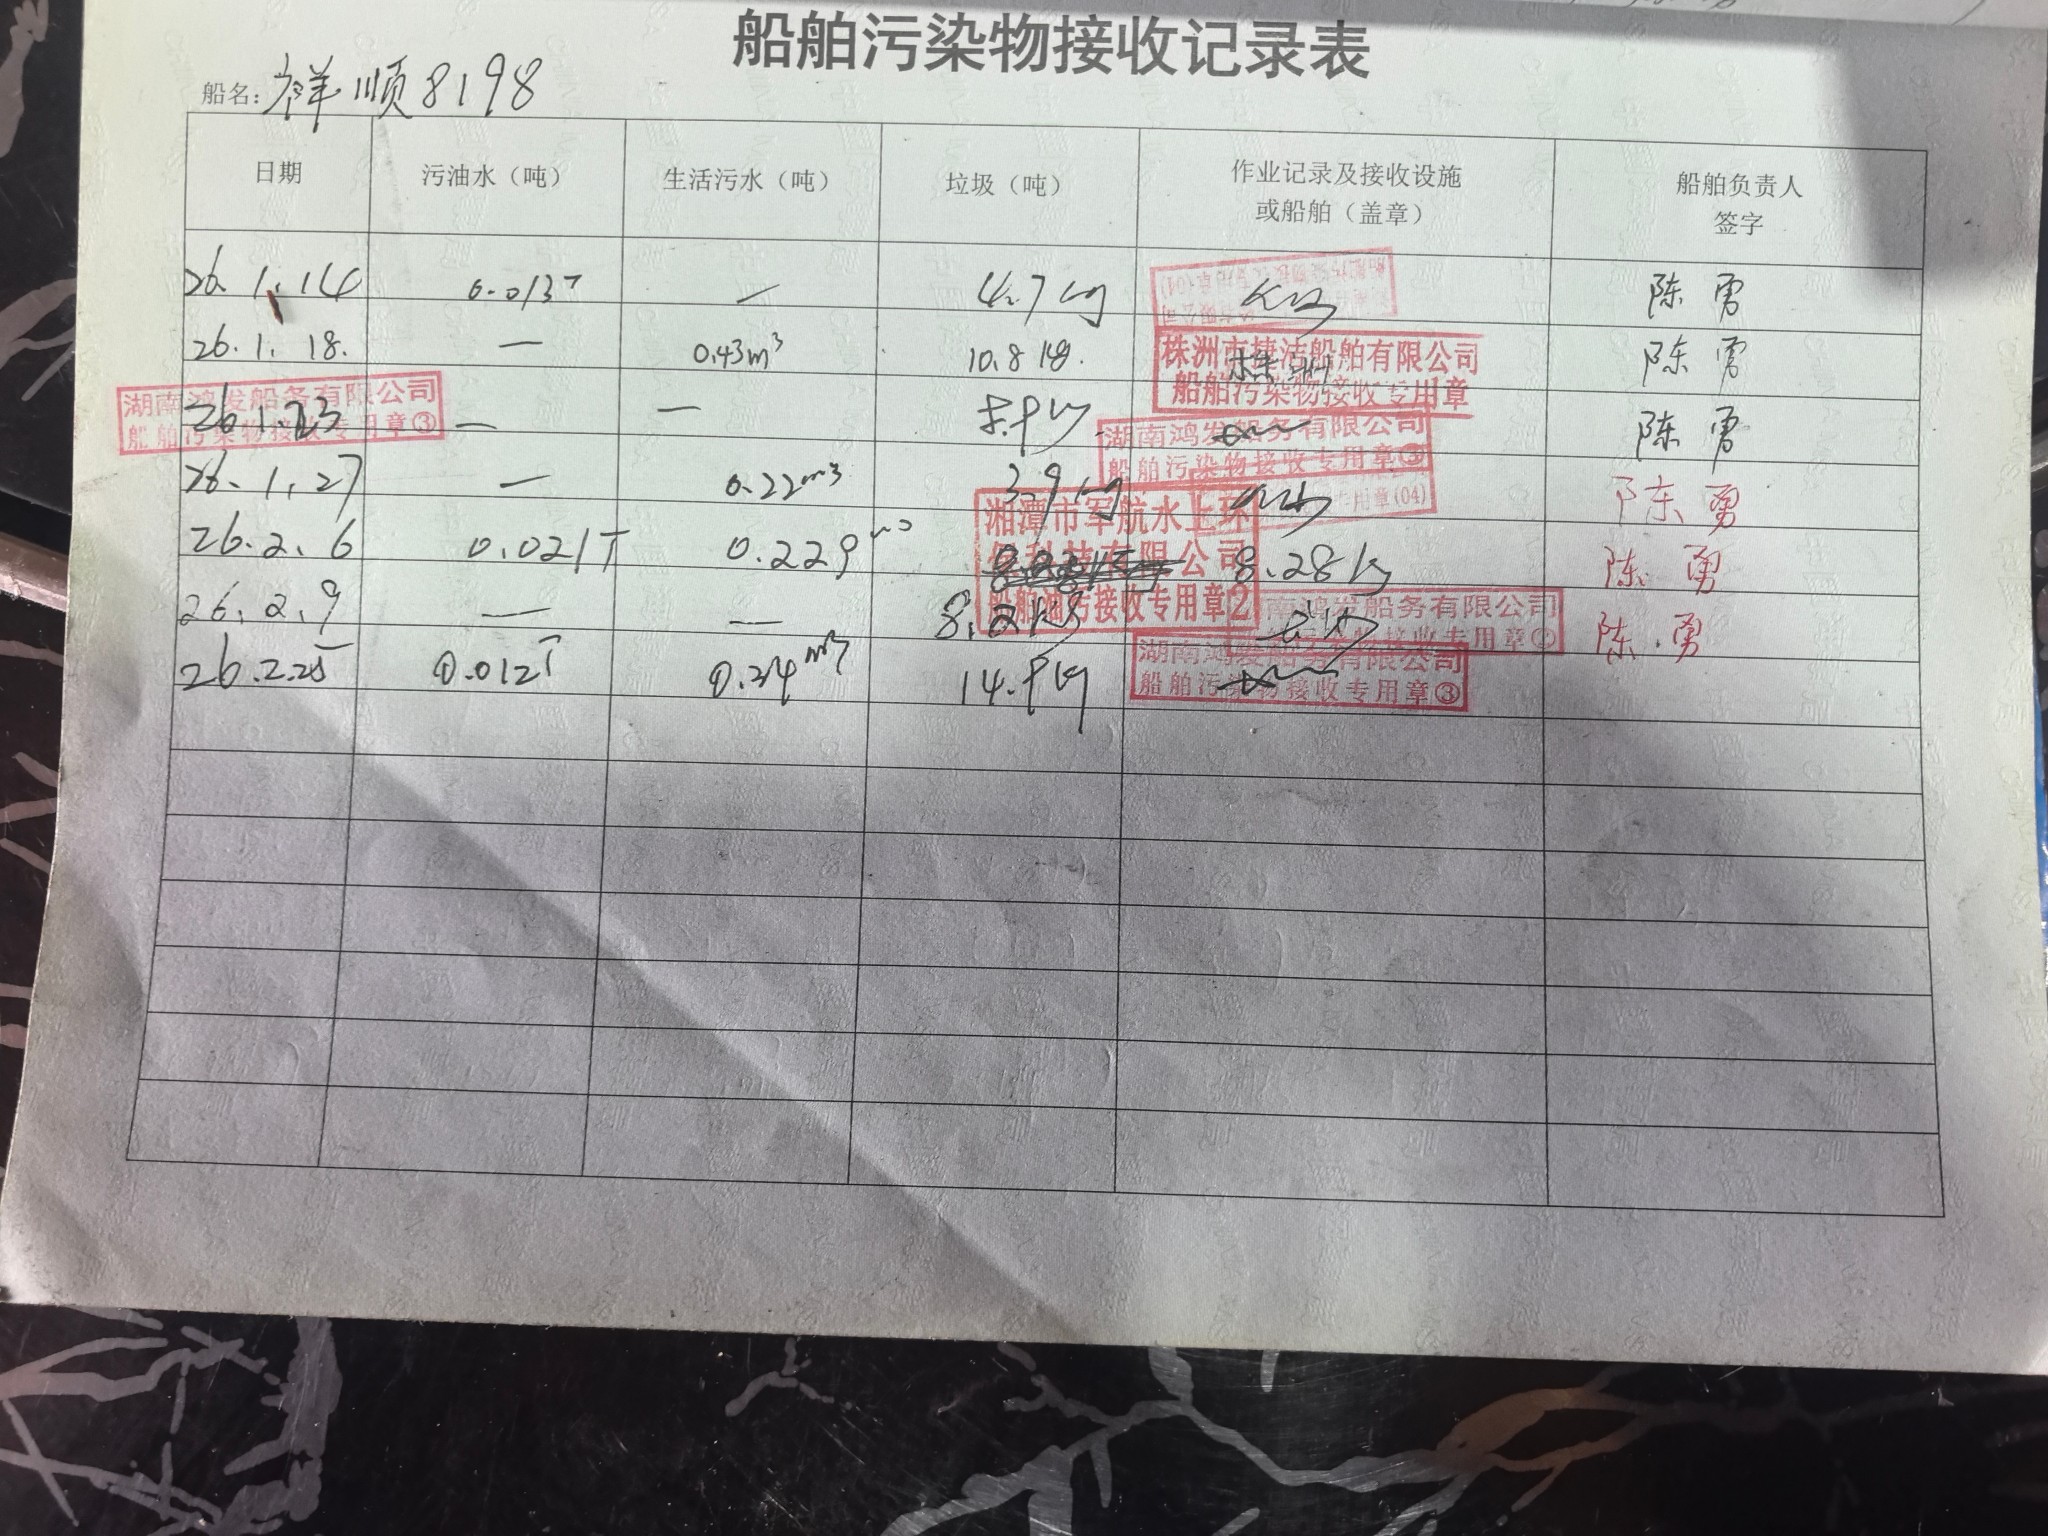 船舶污染物接收记录表
船名：祥顺8198
日期 污油水（吨） 生活污水（吨） 垃圾（吨） 作业记录及接收设施或船舶（盖章） 船舶负责人签字
26.1.14 0.013T — 4.7kg 陈勇
26.1.18. — 0.43m³ 10.8kg. 株洲 陈勇
株洲市捷洁船舶有限公司
船舶污染物接收专用章
湖南鸿发船务有限公司
船舶污染物接收专用章③
26.1.23 — — 5.9kg 陈勇
湖南鸿发船务有限公司
船舶污染物接收专用章③
26.1.27 — 0.22m³ 3.9kg 陈勇
专用章(04)
湘潭市军航水上环
保科技有限公司
船舶油污接收专用章2
26.2.6 0.021T 0.229 8.28kg 陈勇
26.2.9 — — 8.2kg 陈勇
南鸿发船务有限公司
26.2.25 0.012T 0.24m³ 14.9kg
湖南鸿发船务有限公司
船舶污染物接收专用章③